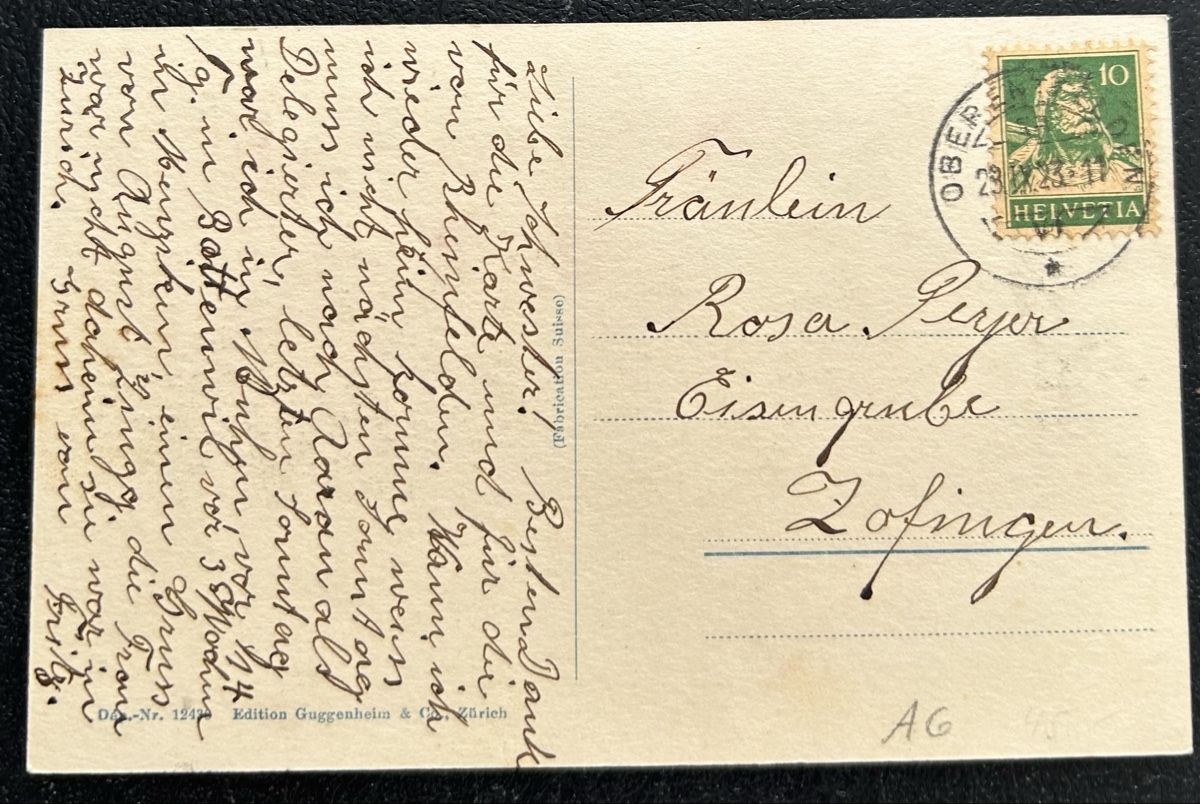 Liebe Schwester! Besten Dank
für die Karte und für die
von Rheinfelden. Wann ich
wieder heim komme weiss
ich nicht nächsten Sonntag
muss ich nach Aarau als
Delegierter, letzten Sonntag
war ich in Muhen vor 14
T. in Bottenwil vor 3 Wochen
in einen Gruss
von August Zingg die Frau
war nicht daheim sie war in
Zürich. Gruss von Fritz.
(Fabrication Suisse)
Dép.-Nr. 12430 Edition Guggenheim & Co., Zürich
10
HELVETIA
OBER
23.IX.23.11
Fräulein
Rosa Peyer
Eisengrube
Zofingen.
AG